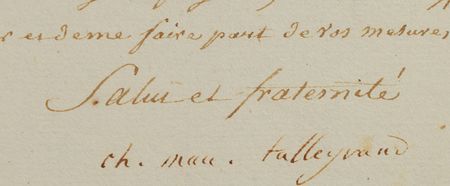 et de me faire part de vos mesures,
Salut et fraternité
ch. mau. talleyrand